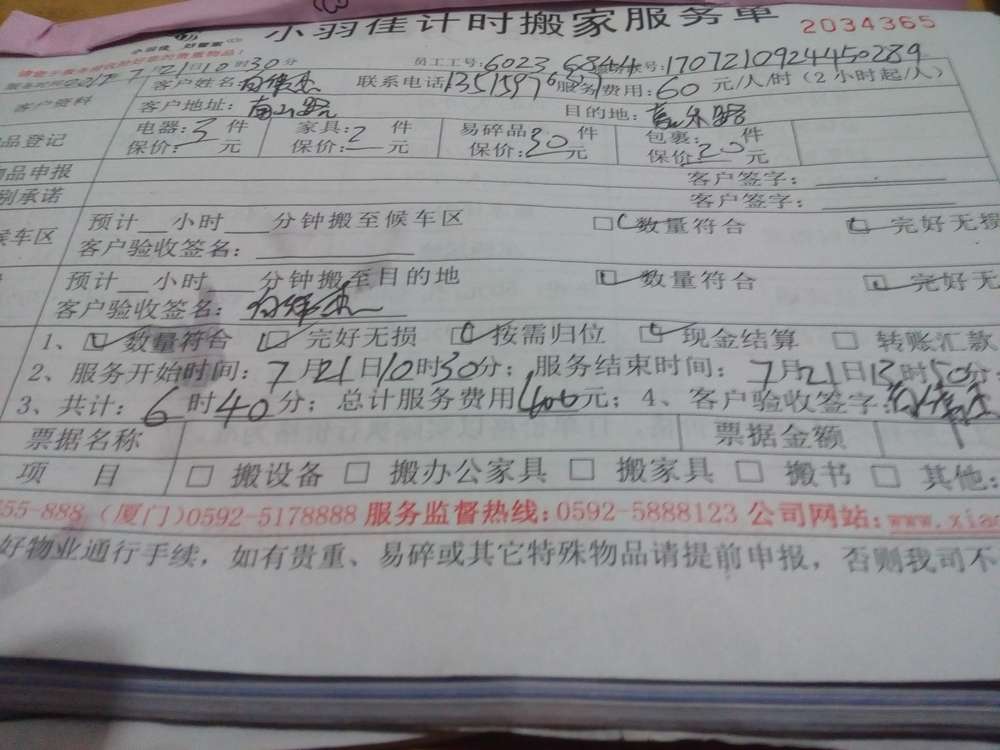 小羽佳计时搬家服务单 2034365
小羽佳 好管家
员工工号:6023 6844 号:1707210924450289
7月21日10时30分
客户资料 客户姓名: 联系电话 服务费用:60元/人/时(2小时起/人)
客户地址:南山路 目的地:
品登记 电器:3件 家具:2件 易碎品 件 包裹: 件
保价: 元 保价: 元 保价:30元 保价20元
物品申报 客户签字:
别承诺 客户签字:
候车区 预计 小时 分钟搬至候车区 □数量符合 □完好无损
客户验收签名:
预计 小时 分钟搬至目的地 □数量符合 □完好无
客户验收签名:
1、□数量符合 □完好无损 □按需归位 □现金结算 □转账汇款
2、服务开始时间:7月21日10时30分;服务结束时间:7月21日13时50分;
3、共计:6时40分;总计服务费用400元;4、客户验收签字:
票据名称 票据金额
项目 □搬设备 □搬办公家具 □搬家具 □搬书 □其他:
55-888 (厦门)0592-5178888 服务监督热线:0592-5888123 公司网站:www.xia
好物业通行手续,如有贵重、易碎或其它特殊物品请提前申报,否则我司不